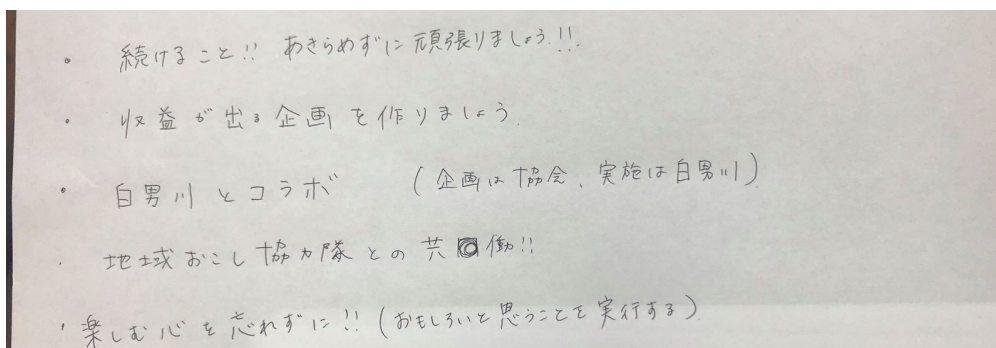 ・ 続けること!! あきらめずに頑張りましょう!!
・ 収益が出る企画を作りましょう
・ 白男川とコラボ (企画は協会、実施は白男川)
・ 地域おこし協力隊との共働!!
・ 楽しむ心を忘れずに!! (おもしろいと思うことを実行する)